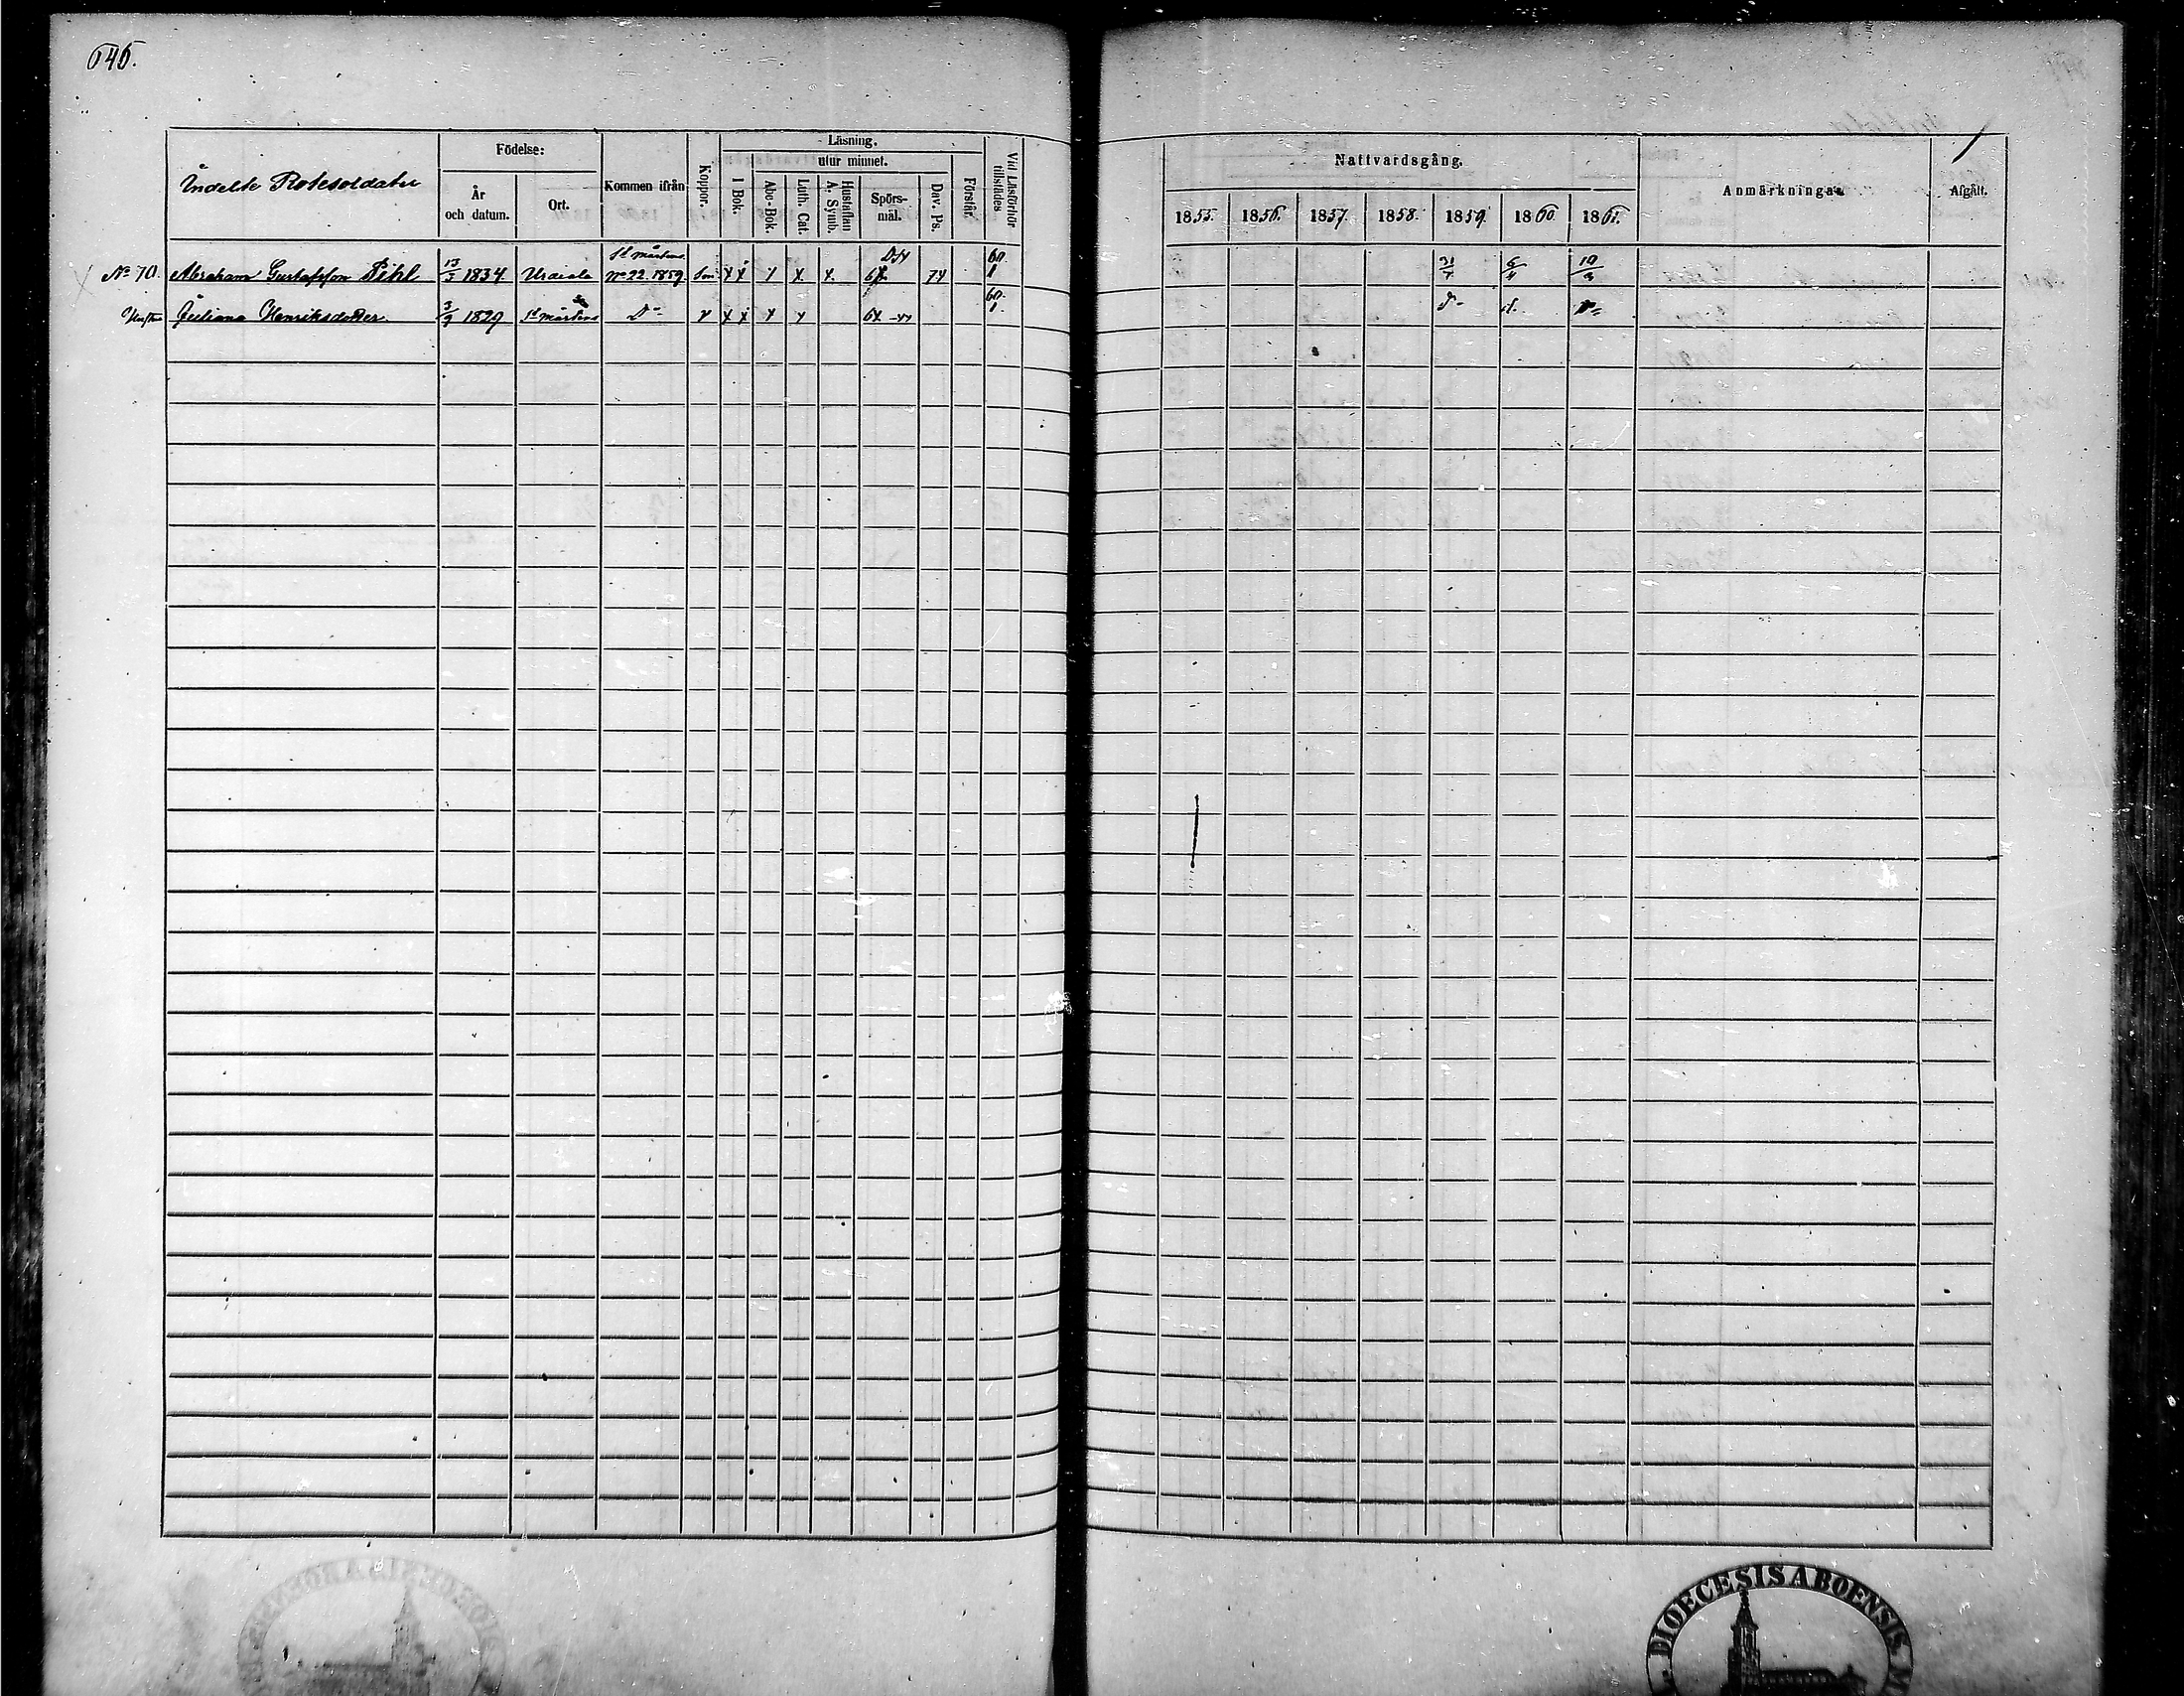 645.
Indelte Rotesoldater
Födelse:
År och datum.
Ort.
Kommen ifrån
Koppor.
Läsning.
I Bok.
utur minnet.
Abc-Bok.
Luth. Cat.
Hustaflan A. Symb.
Spörsmål.
Dav. Ps.
Förstår.
Vid Läsförhör tillstädes
Nattvardsgång.
1855. 1856. 1857. 1858. 1859. 1860. 1861.
Anmärkningar.
Afgått.
No 70. Abraham Gustafsson Pihl 13/3 1834. Urdiala St Mårtens No 22. 1859. x x x x x. 6x 7x 60. 1 31/7 6/4 10/3
Hustru Juliana Henriksdotter. 3/9 1829 St Mårtens Do x x x x x 6x 60. 1 Do d. Do
DIOECESIS ABOENSIS